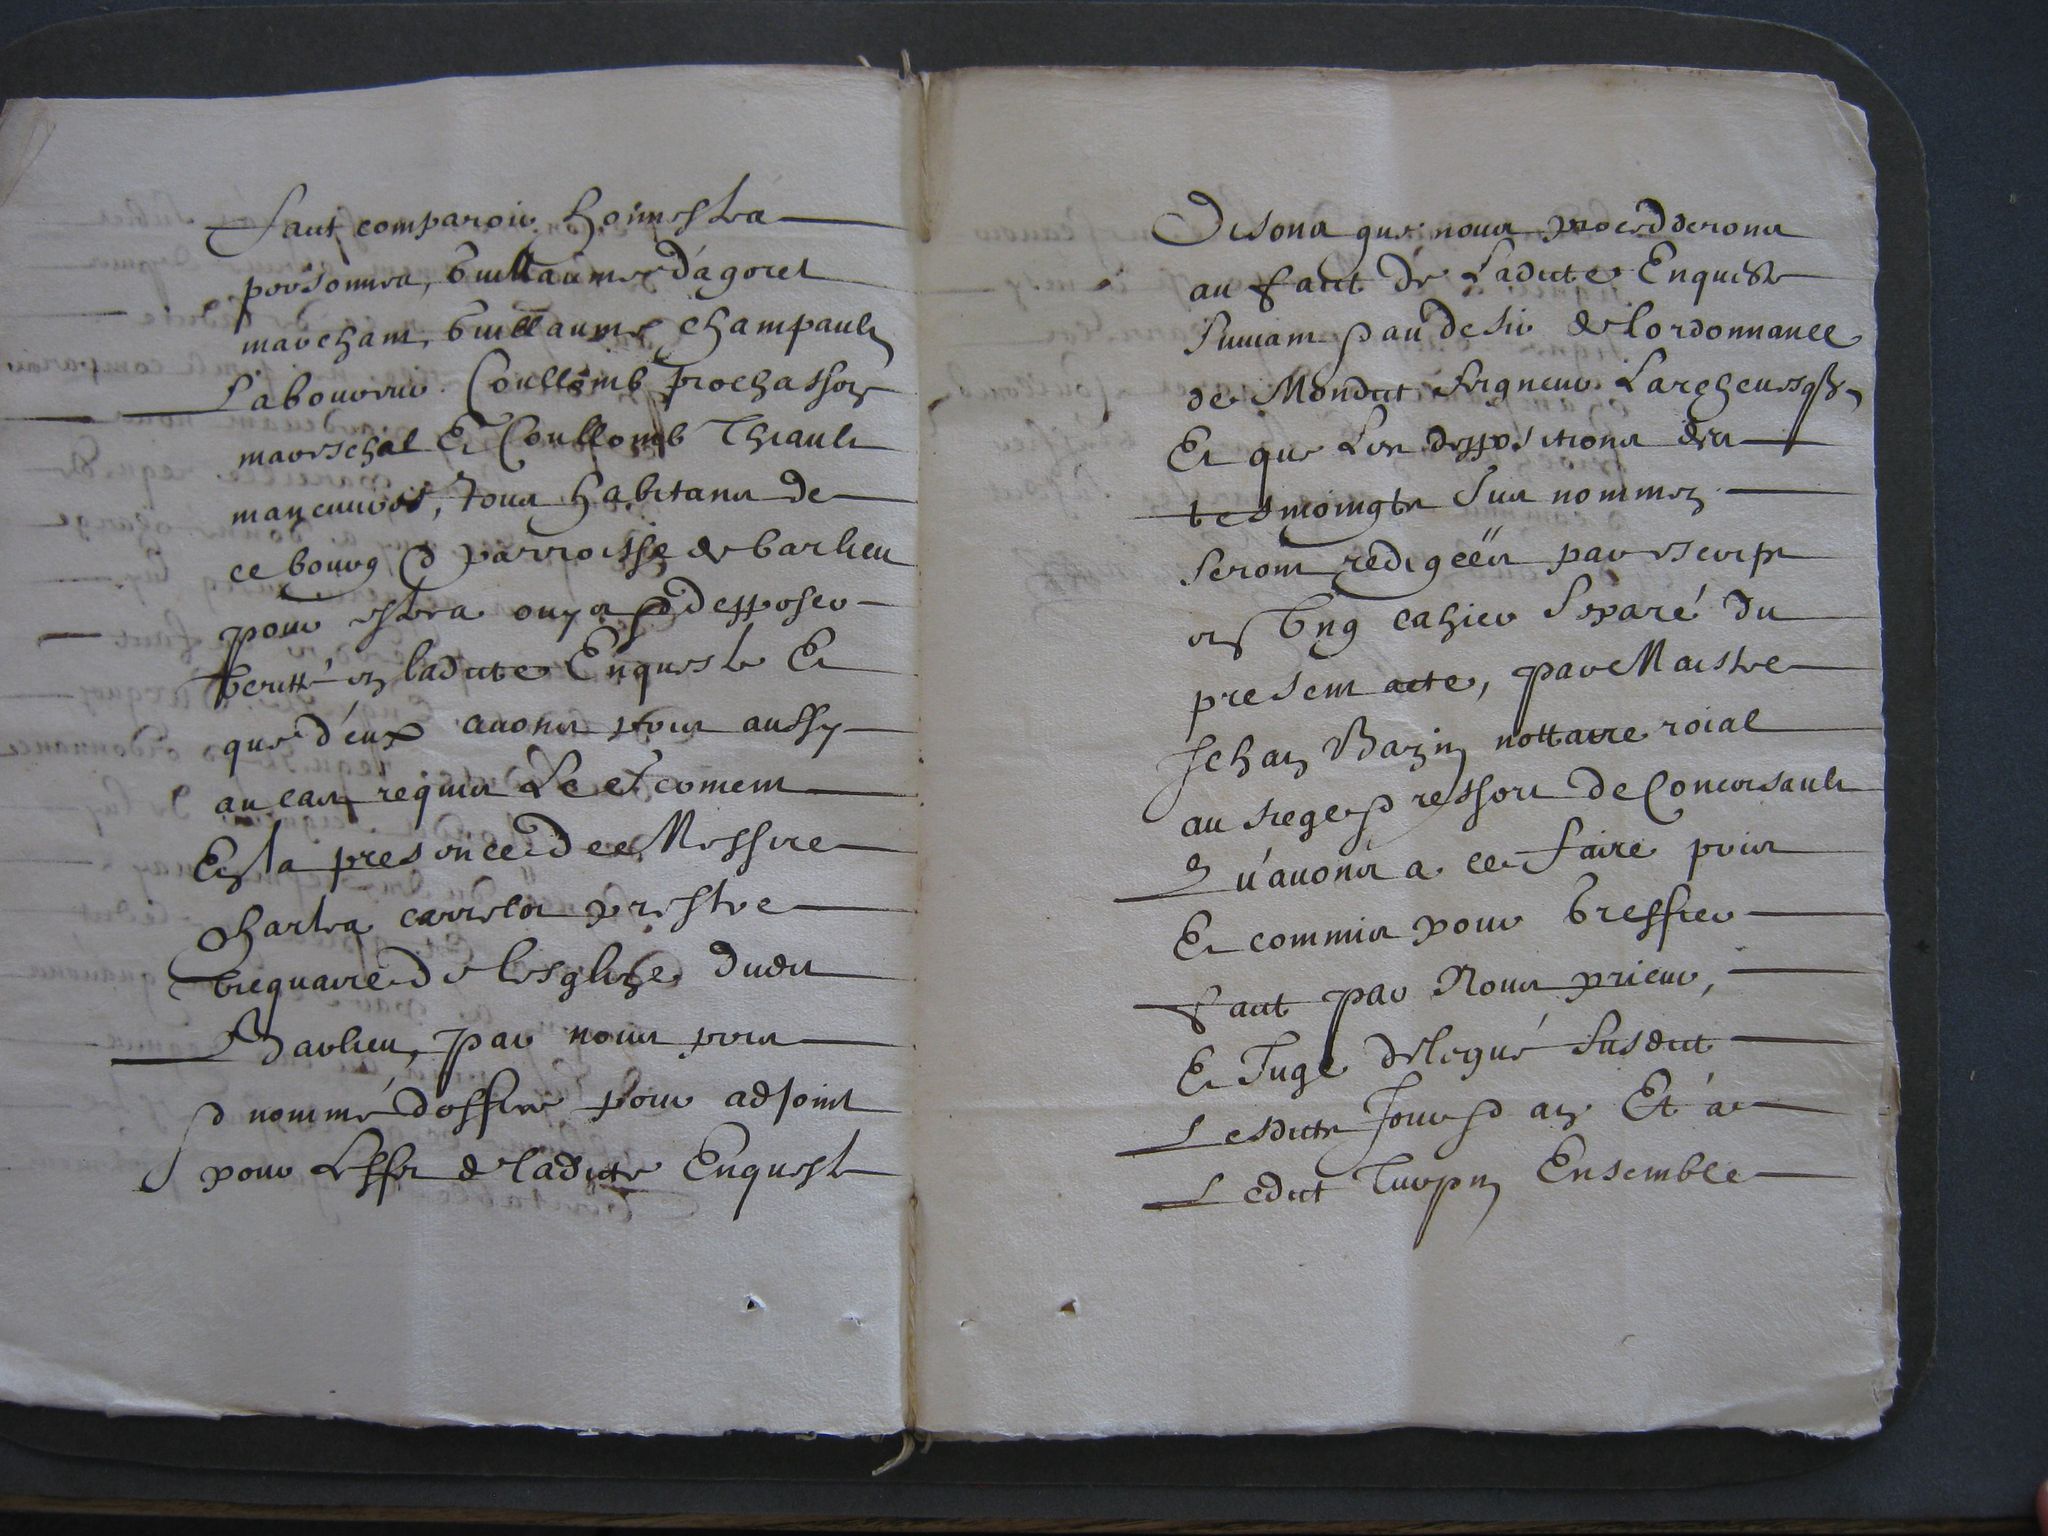 Faict comparoir honnestes
personnes, Guillaume d'agoret
marchant, Guillaume Champault
Laboureur Coullomb Prochasson
mareschal Et Coullomb Thiault
maneuvre, Tous habitans de
ce bourg & parroisse de barlieu
pour estre ouys & depposer
veritté en ladicte Enqueste Et
que d'eux avons pris aussy
au cas requis Le serment
En la presence de Messire
Charles carrelot prestre
vicquaire de lesglize dudit
Barlieu, par nous pris
& nommé d'office pour adjoint
pour Leffet de ladicte Enqueste
Disons que nous procedderons
au Faict de Ladicte Enqueste
suivant & au desir de lordonnance
de Mondict seigneur Larchevesque
Et que Les deppositions des
tesmoingtz sus nommez
seront redigéës par escript
en Ung cahier separé du
present acte, par Maistre
Jehan Bazin nottaire roial
au siege & ressort de Concorsault
Qu'avons a ce faire pris
Et commis pour Greffier
Faict par Nous prieur,
Et Juge delegué susdict
Lesdictz Jour & an Et a
Ledict Turpin Ensemble